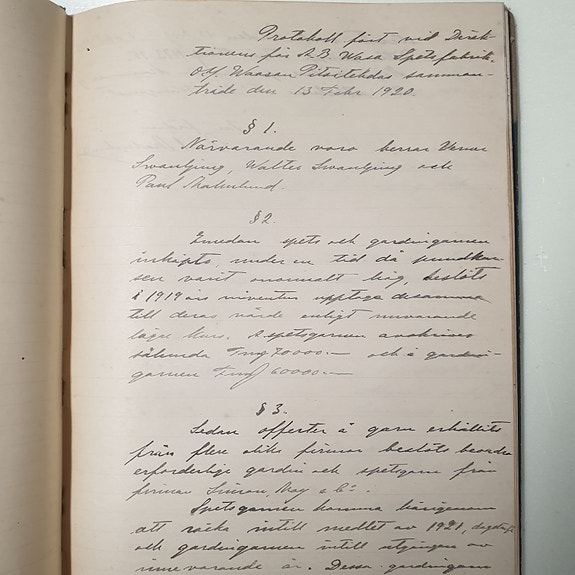 Protokoll fört vid Direk-
tionens för A.B. Wasa Spetsfabrik-
O.Y. Waasan Pitsitehdas samman-
träde den 13 Febr 1920.
§ 1.
Närvarande voro herrar Verner
Swanljung, Walter Swanljung och
Paul
§ 2.
Emedan spets och gardingarnen
inköpts under en tid då pundkur
sen varit onormalt hög, beslöts
i 1919 års inventur upptaga desamma
till deras värde enligt nuvarande
låga kurs. Å spetsgarnen avskrives
sålunda Fmg 70000.— och å gardin-
garnen Fmg 60000.—
§ 3.
Sedan offerter å garn erhållits
från flere olika firmor beslöts beordra
erforderliga gardin och spetsgarn från
firman Simon, May & Co.
Spetsgarnen komma härigenom
att räcka intill medlet av 1921,
och gardingarnen intill utgången av
innevarande år. Dessa gardingarn